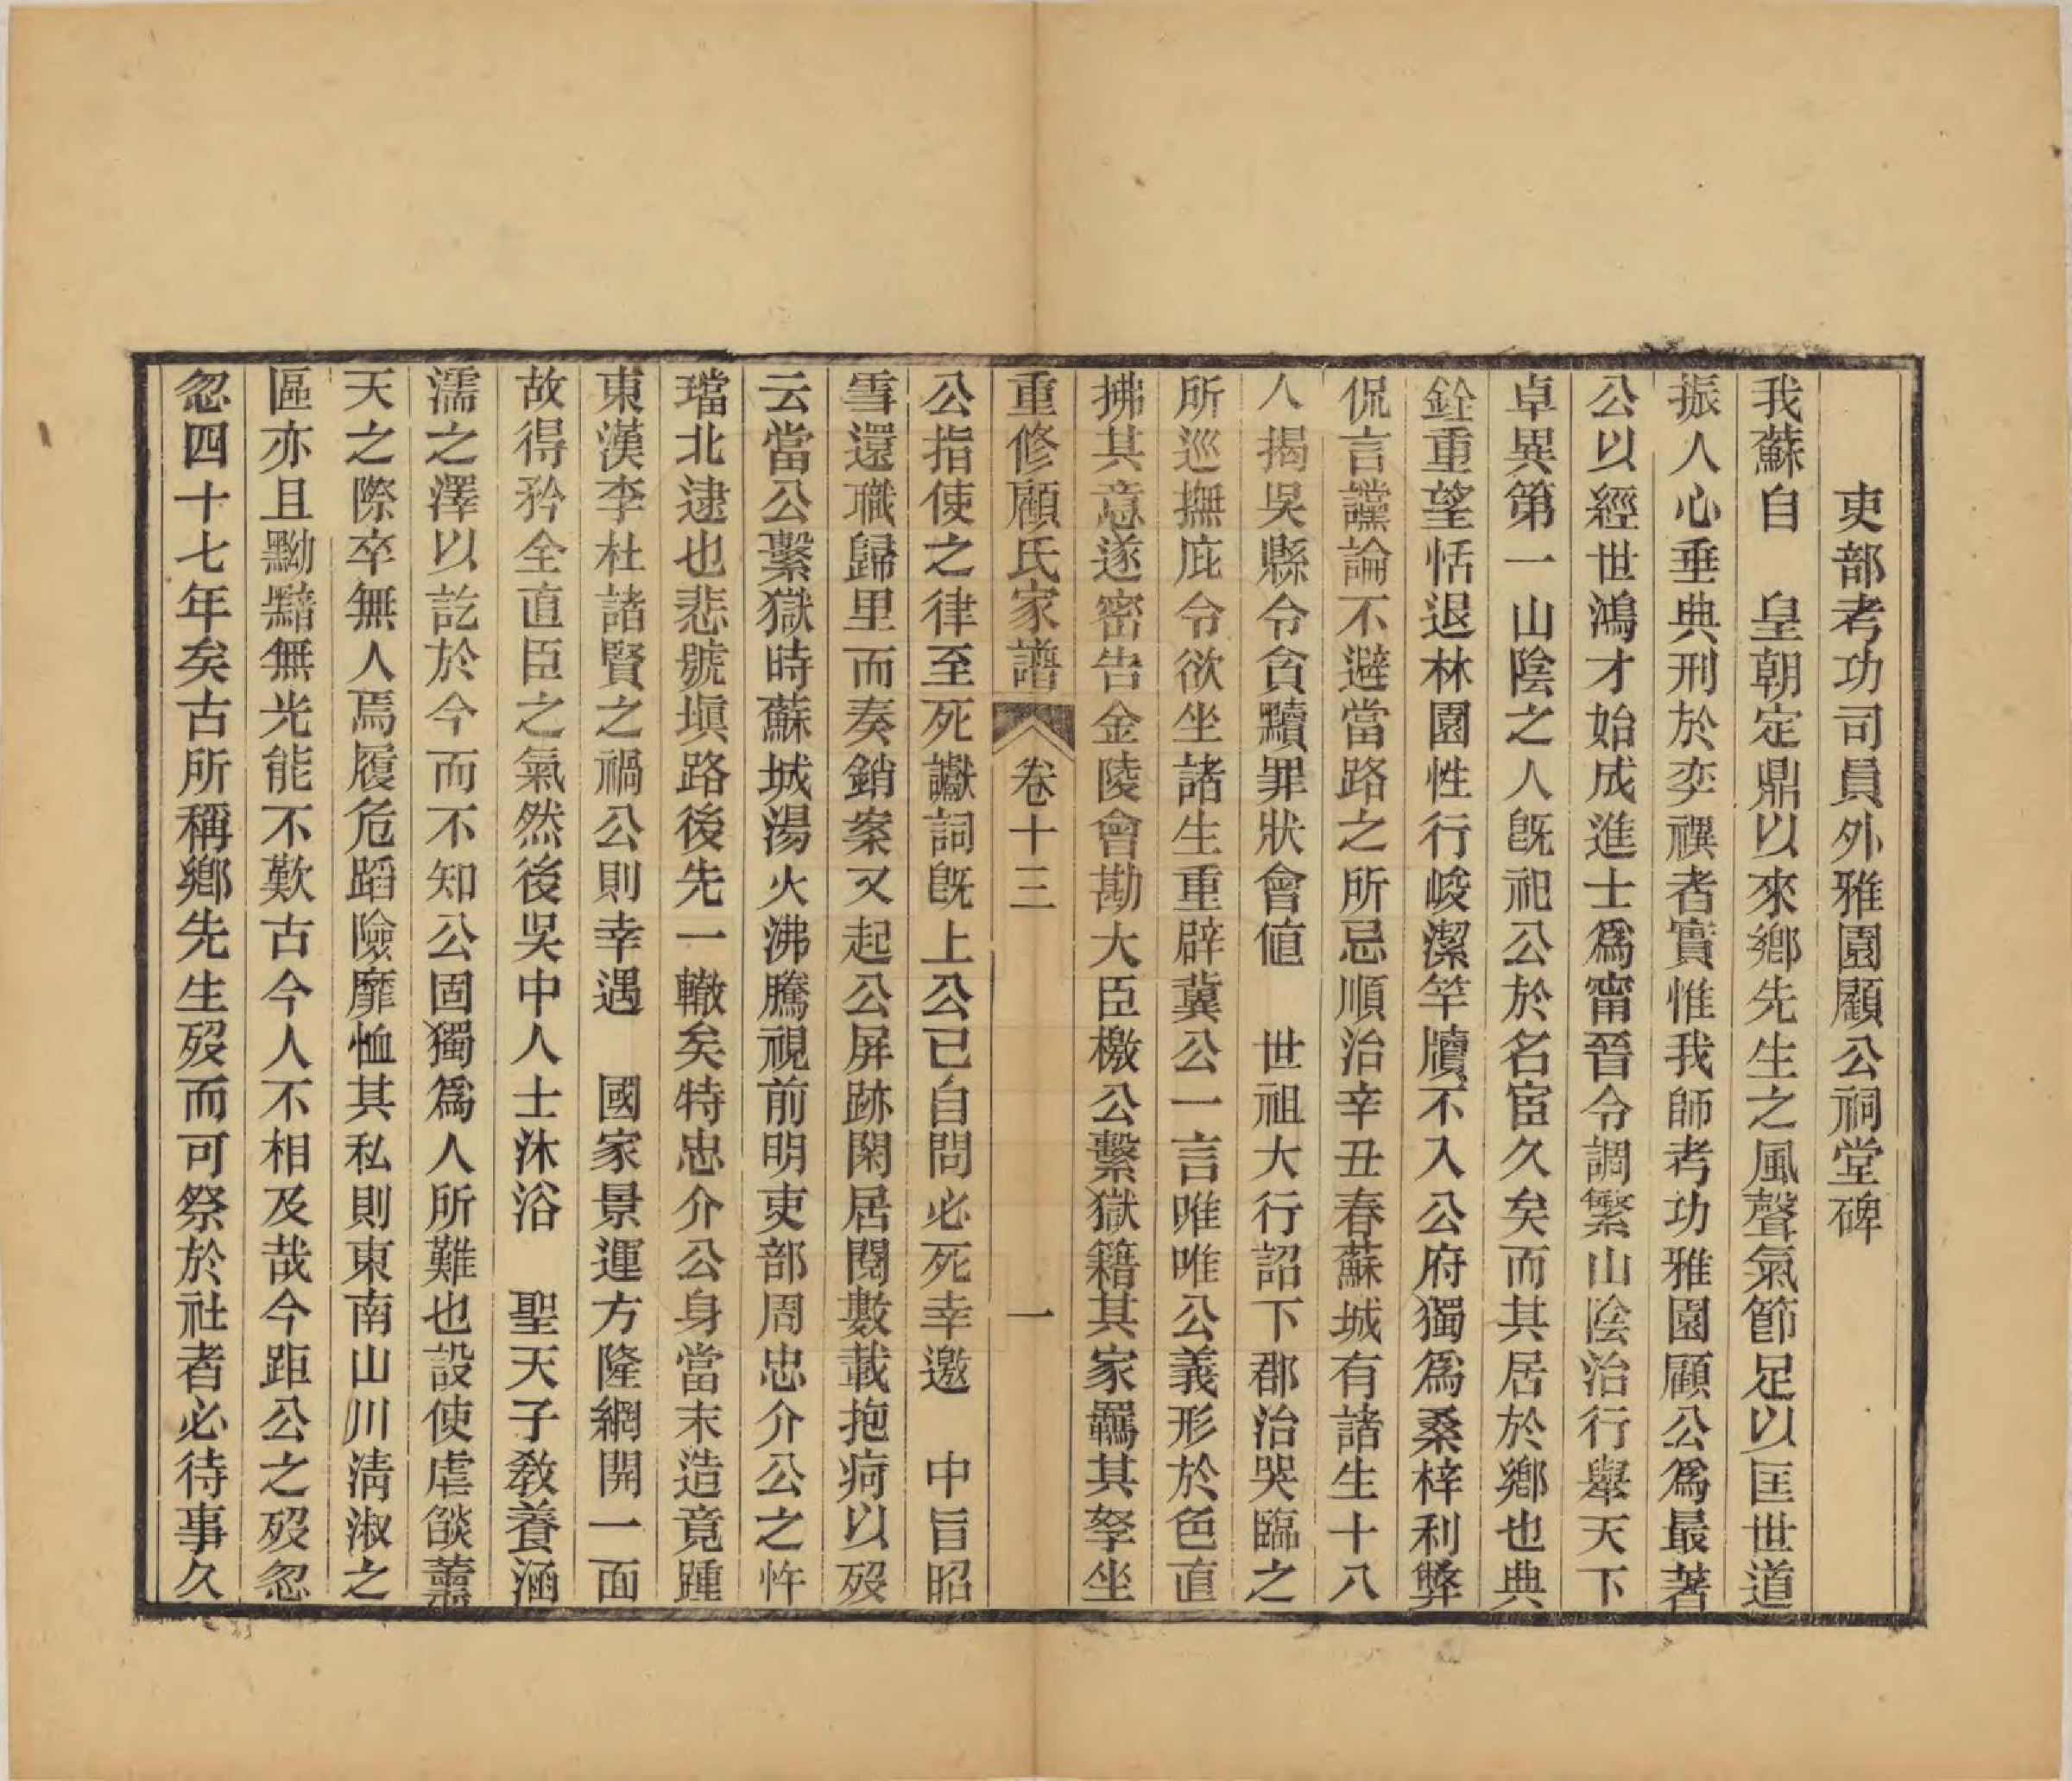 吏部考功司員外雅園顧公祠堂碑
我蘇自　皇朝定鼎以來鄉先生之風聲氣節足以匡世道
振人心垂典刑於奕禩者實惟我師考功雅園顧公爲最著
公以經世鴻才始成進士爲甯晉令調繁山陰治行舉天下
卓異第一山陰之人旣祀公於名宦久矣而其居於鄉也典
銓重望恬退林園性行峻潔竿牘不入公府獨爲桑梓利弊
侃言讜論不避當路之所忌順治辛丑春蘇城有諸生十八
人揭吳縣令貪黷罪狀會值　世祖大行詔下郡治哭臨之
所巡撫庇令欲坐諸生重辟冀公一言唯唯公義形於色直
拂其意遂密告金陵會勘大臣檄公繫獄籍其家羈其孥坐
重修顧氏家譜　卷十三　一
公指使之律至死讞詞旣上公已自問必死幸邀　中旨昭
雪還職歸里而奏銷案又起公屏跡閑居閱數載抱疴以歿
云當公繫獄時蘇城湯火沸騰視前明吏部周忠介公之忤
璫北逮也悲號塡路後先一轍矣特忠介公身當末造竟踵
東漢李杜諸賢之禍公則幸遇　國家景運方隆網開一面
故得矜全直臣之氣然後吳中人士沐浴　聖天子教養涵
濡之澤以訖於今而不知公固獨爲人所難也設使虐燄薰
天之際卒無人焉履危蹈險靡恤其私則東南山川淸淑之
區亦且黝黯無光能不歎古今人不相及哉今距公之歿忽
忽四十七年矣古所稱鄉先生歿而可祭於社者必待事久